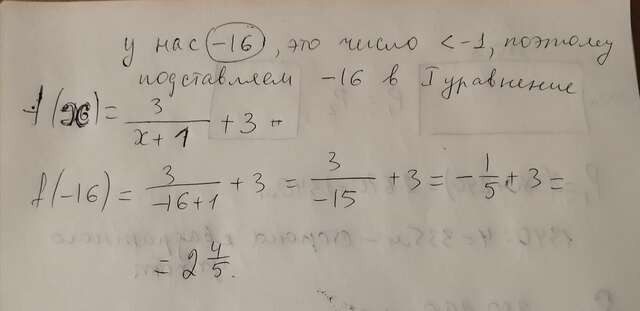 у нас -16, это число < -1, поэтому
подставляем -16 в I уравнение
f(x) = 3/(x+1) + 3
f(-16) = 3/(-16+1) + 3 = 3/(-15) + 3 = -1/5 + 3 =
= 2 4/5.